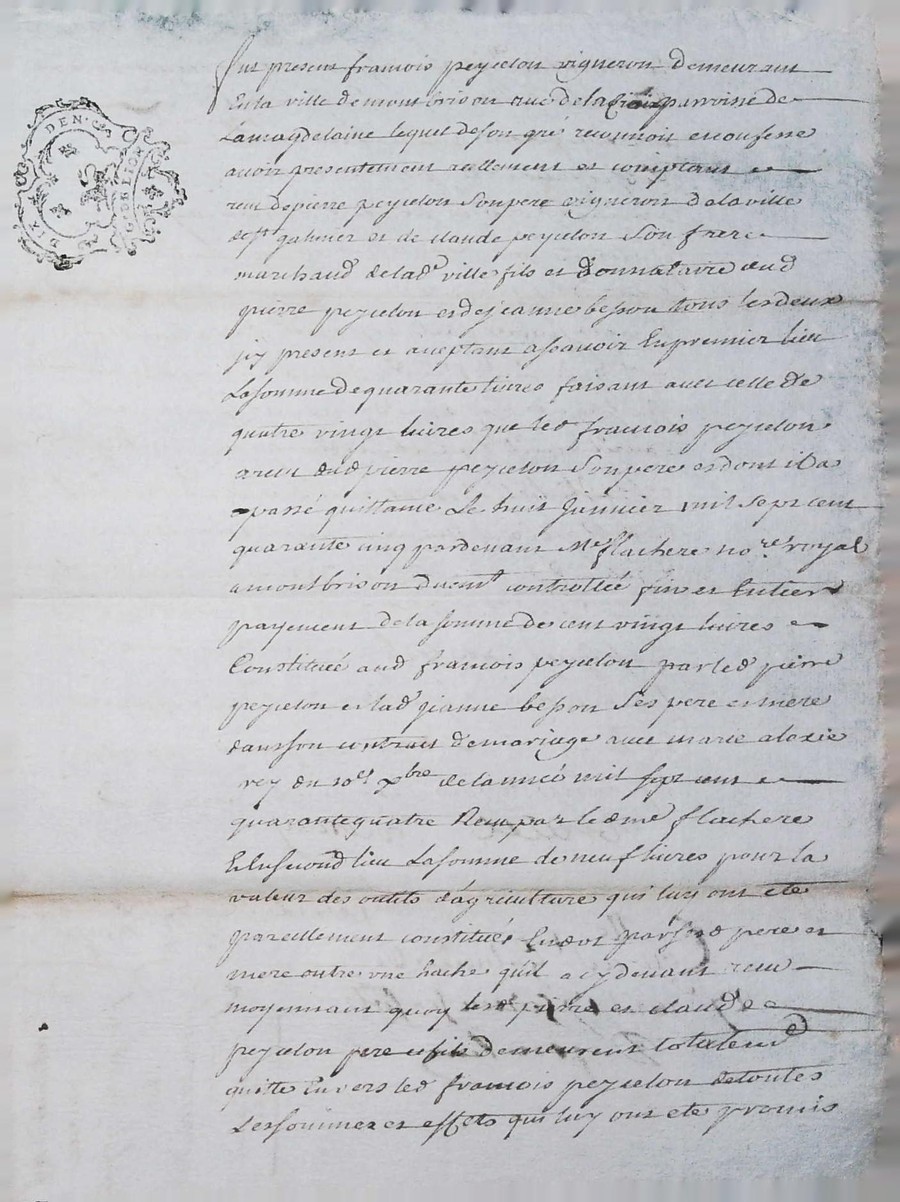 DIX DEN.
G. DE LION
Fut present francois peycelon vigneron demeurant
En la ville de montbrison rue de la Croix parroisse de
La magdelaine lequel de son gré reconnois et confesse
avoir presentement reellement et comptant
receu de pierre peycelon son pere vigneron de la ville
de st galmier et de claude peycelon son frere
marchand de lade ville fils et donnataire dud
pierre peycelon et de jeanne besson tous les deux
jcy present et aceptant a scavoir En premier lieu
La somme de quarante livres faisant avec celle de
quatre vingt livres que led francois peycelon
a receu dud pierre peycelon son pere et dont il a
passé quittance Le huit Janvier mil sept cent
quarante cinq pardevant Me flachere nore royal
a montbrison duemt controllée fin et Entier
payement de la somme de cent vingt livres
Constituée aud francois peycelon par led pierre
peycelon et lad jeanne besson ses pere et mere
dans son contrat de mariage avec marie alexie
rey du xbre de lannée mil sept cent
quarante quatre Receu par led me flachere
Et En second lieu La somme de neuf livres pour la
valeur des outils d'agriculture qui luy ont eté
pareillement constitués En dot par sesd pere et
mere outre une hache qu'il a cy devant receu
moyennant quoy lesd pierre et claude
peycelon pere et fils demeurent totalemt
quitte Envers led francois peycelon de toutes
Les sommes et effets qui luy ont eté promis